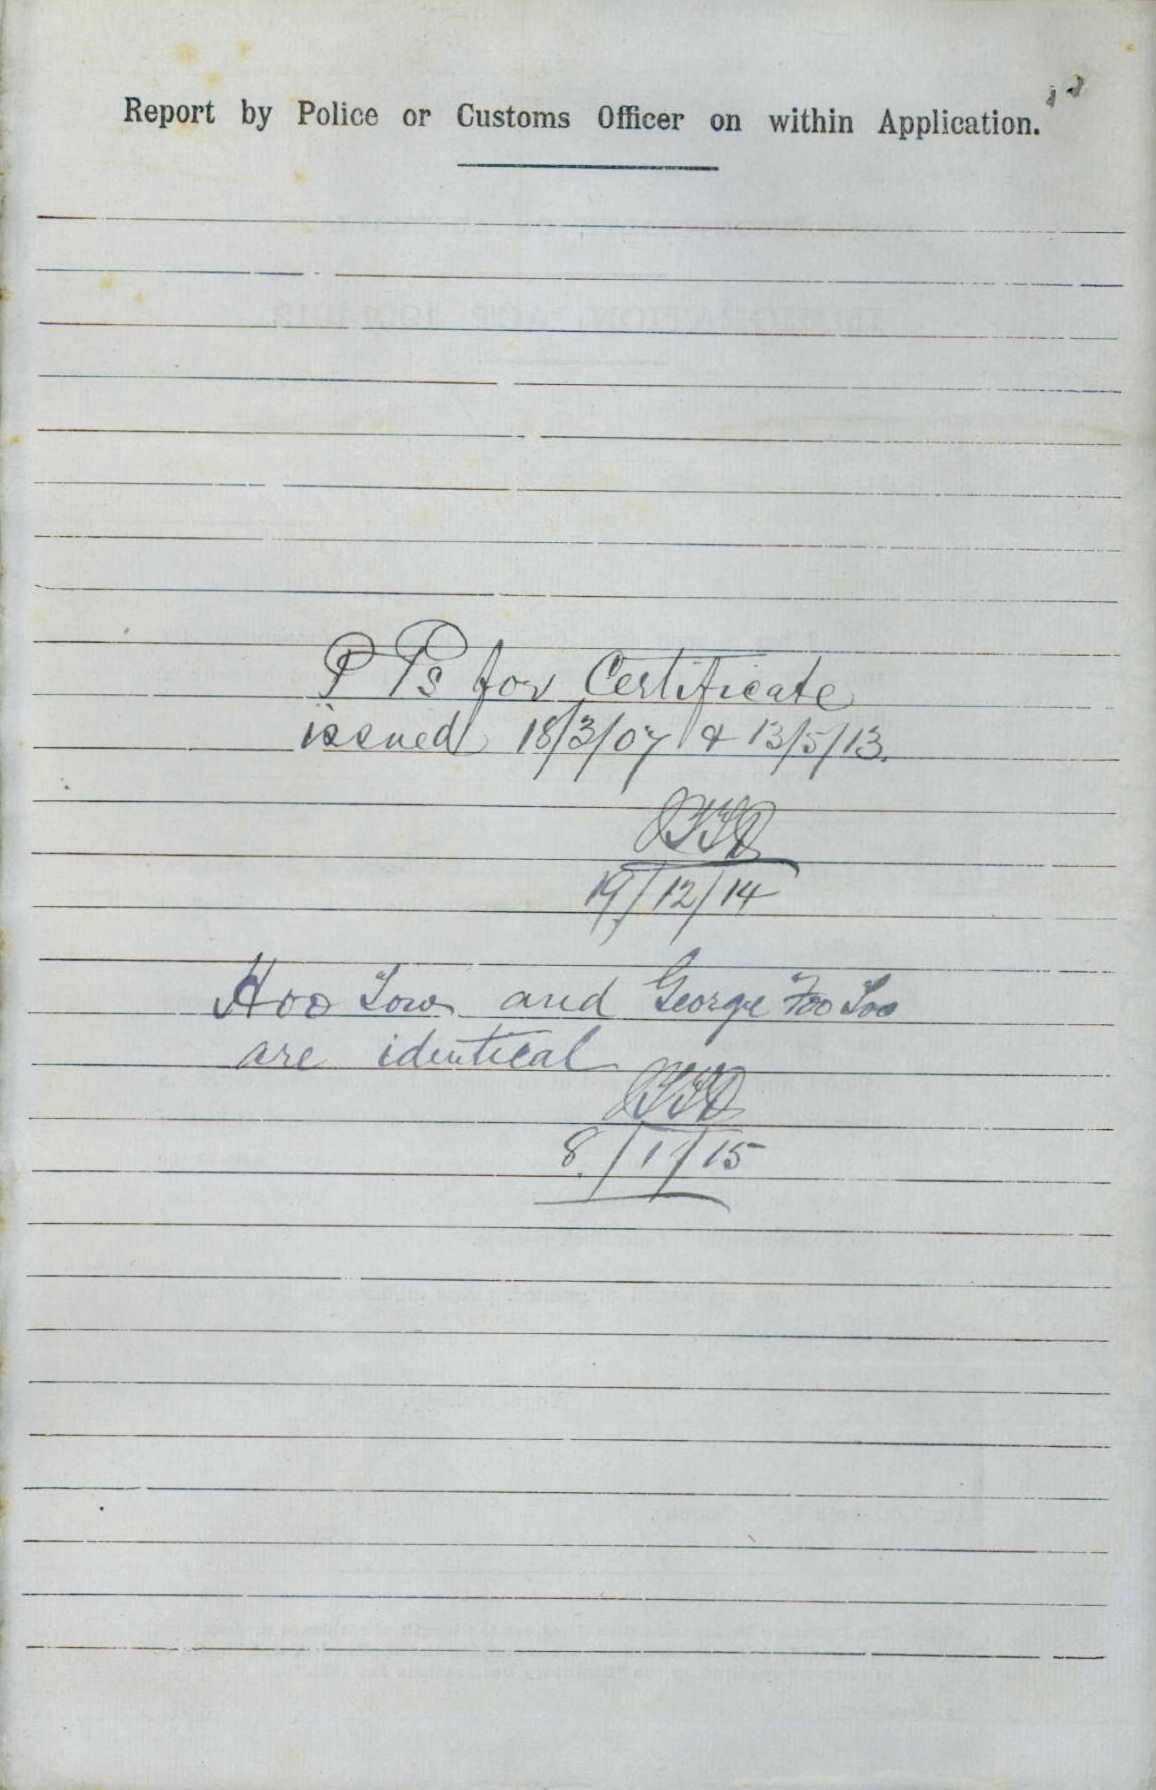 Report by Police or Customs Officer on within Application.
P Ps for Certificate
issued 18/3/07 & 13/5/13.
19/12/14
Hoo Low and George Foo Loo
are identical
8/1/15